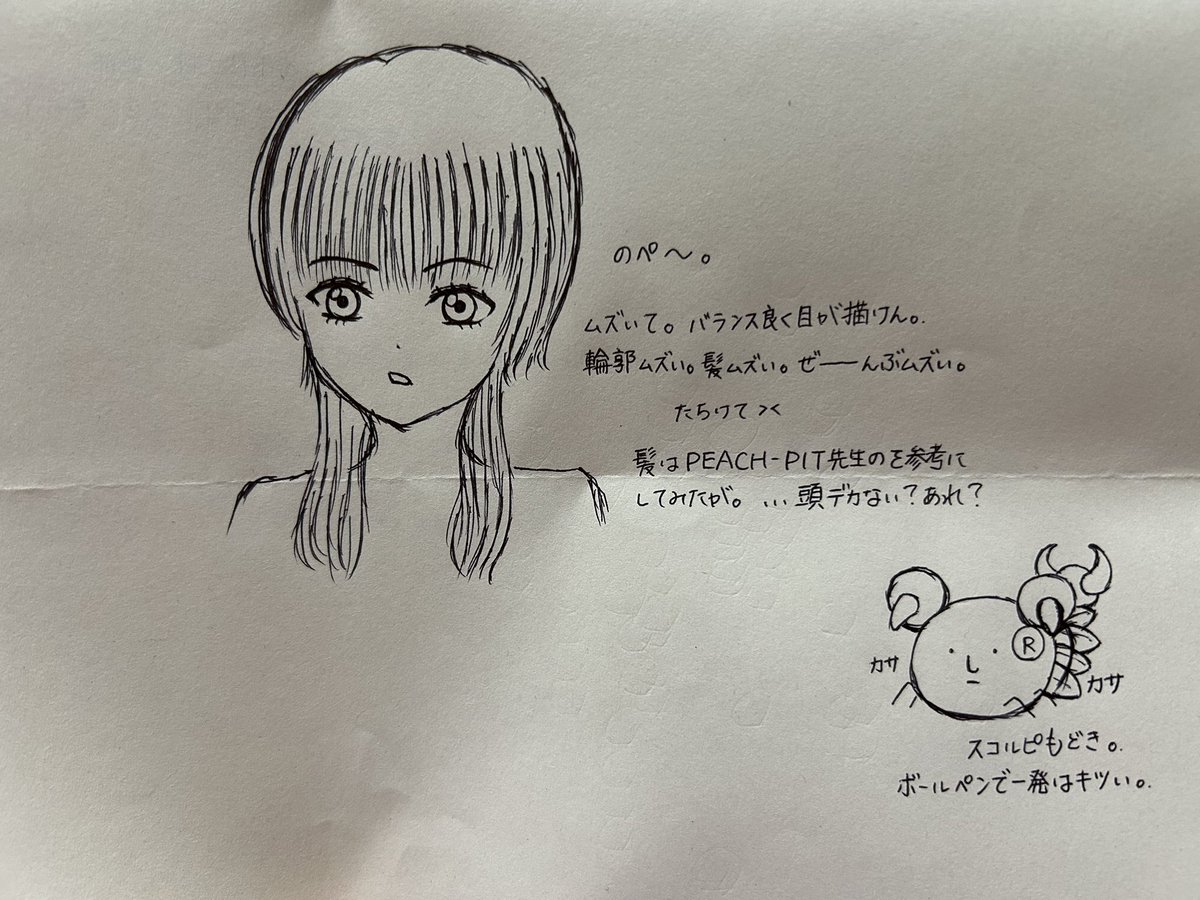 のペ〜。
ムズいて。バランス良く目が描けん。
輪郭ムズい。髪ムズい。ぜーーんぶムズい。
たちけて
髪はPEACH-PIT先生のを参考に
してみたが。...頭デカない?あれ?
R
カサ
カサ
スコルピもどき。
ボールペンで一発はキツい。